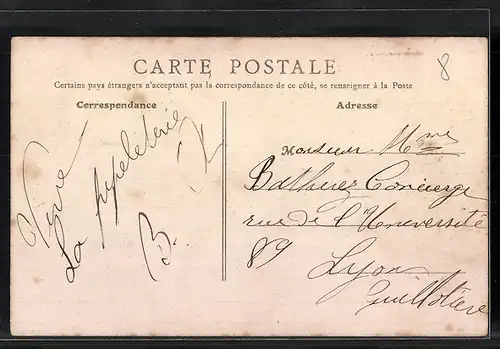 8
CARTE POSTALE
Certains pays étrangers n'acceptant pas la correspondance de ce côté, se renseigner à la Poste
Correspondance
Vive
La
B.
Adresse
Monsieur Mme
Concierge
rue de l'Université
89
Lyon
Guillotière